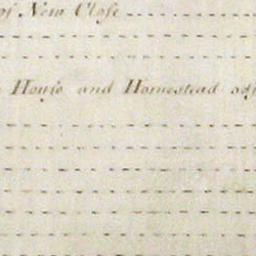 of New Close
House and Homestead adj